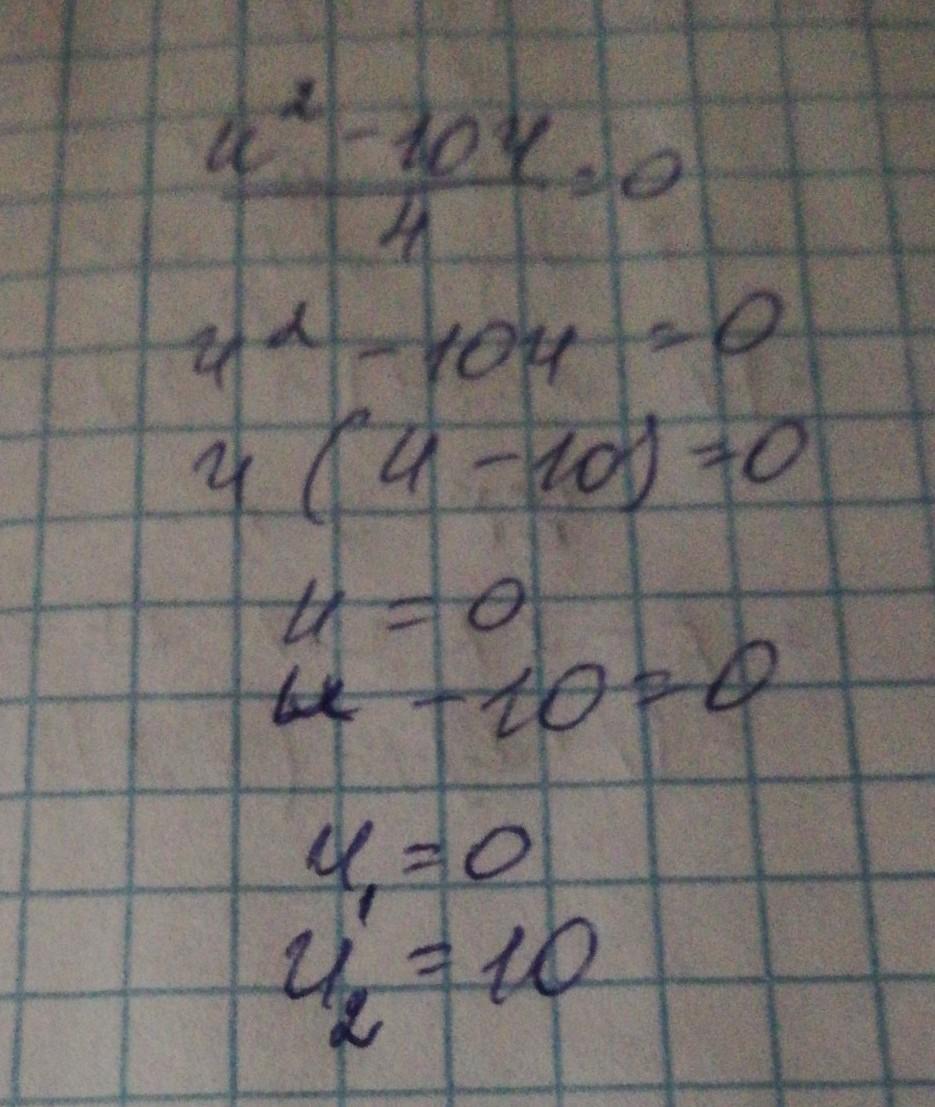 u² - 10u / 4 = 0
u² - 10u = 0
u (u - 10) = 0
u = 0
u - 10 = 0
u₁ = 0
u₂ = 10